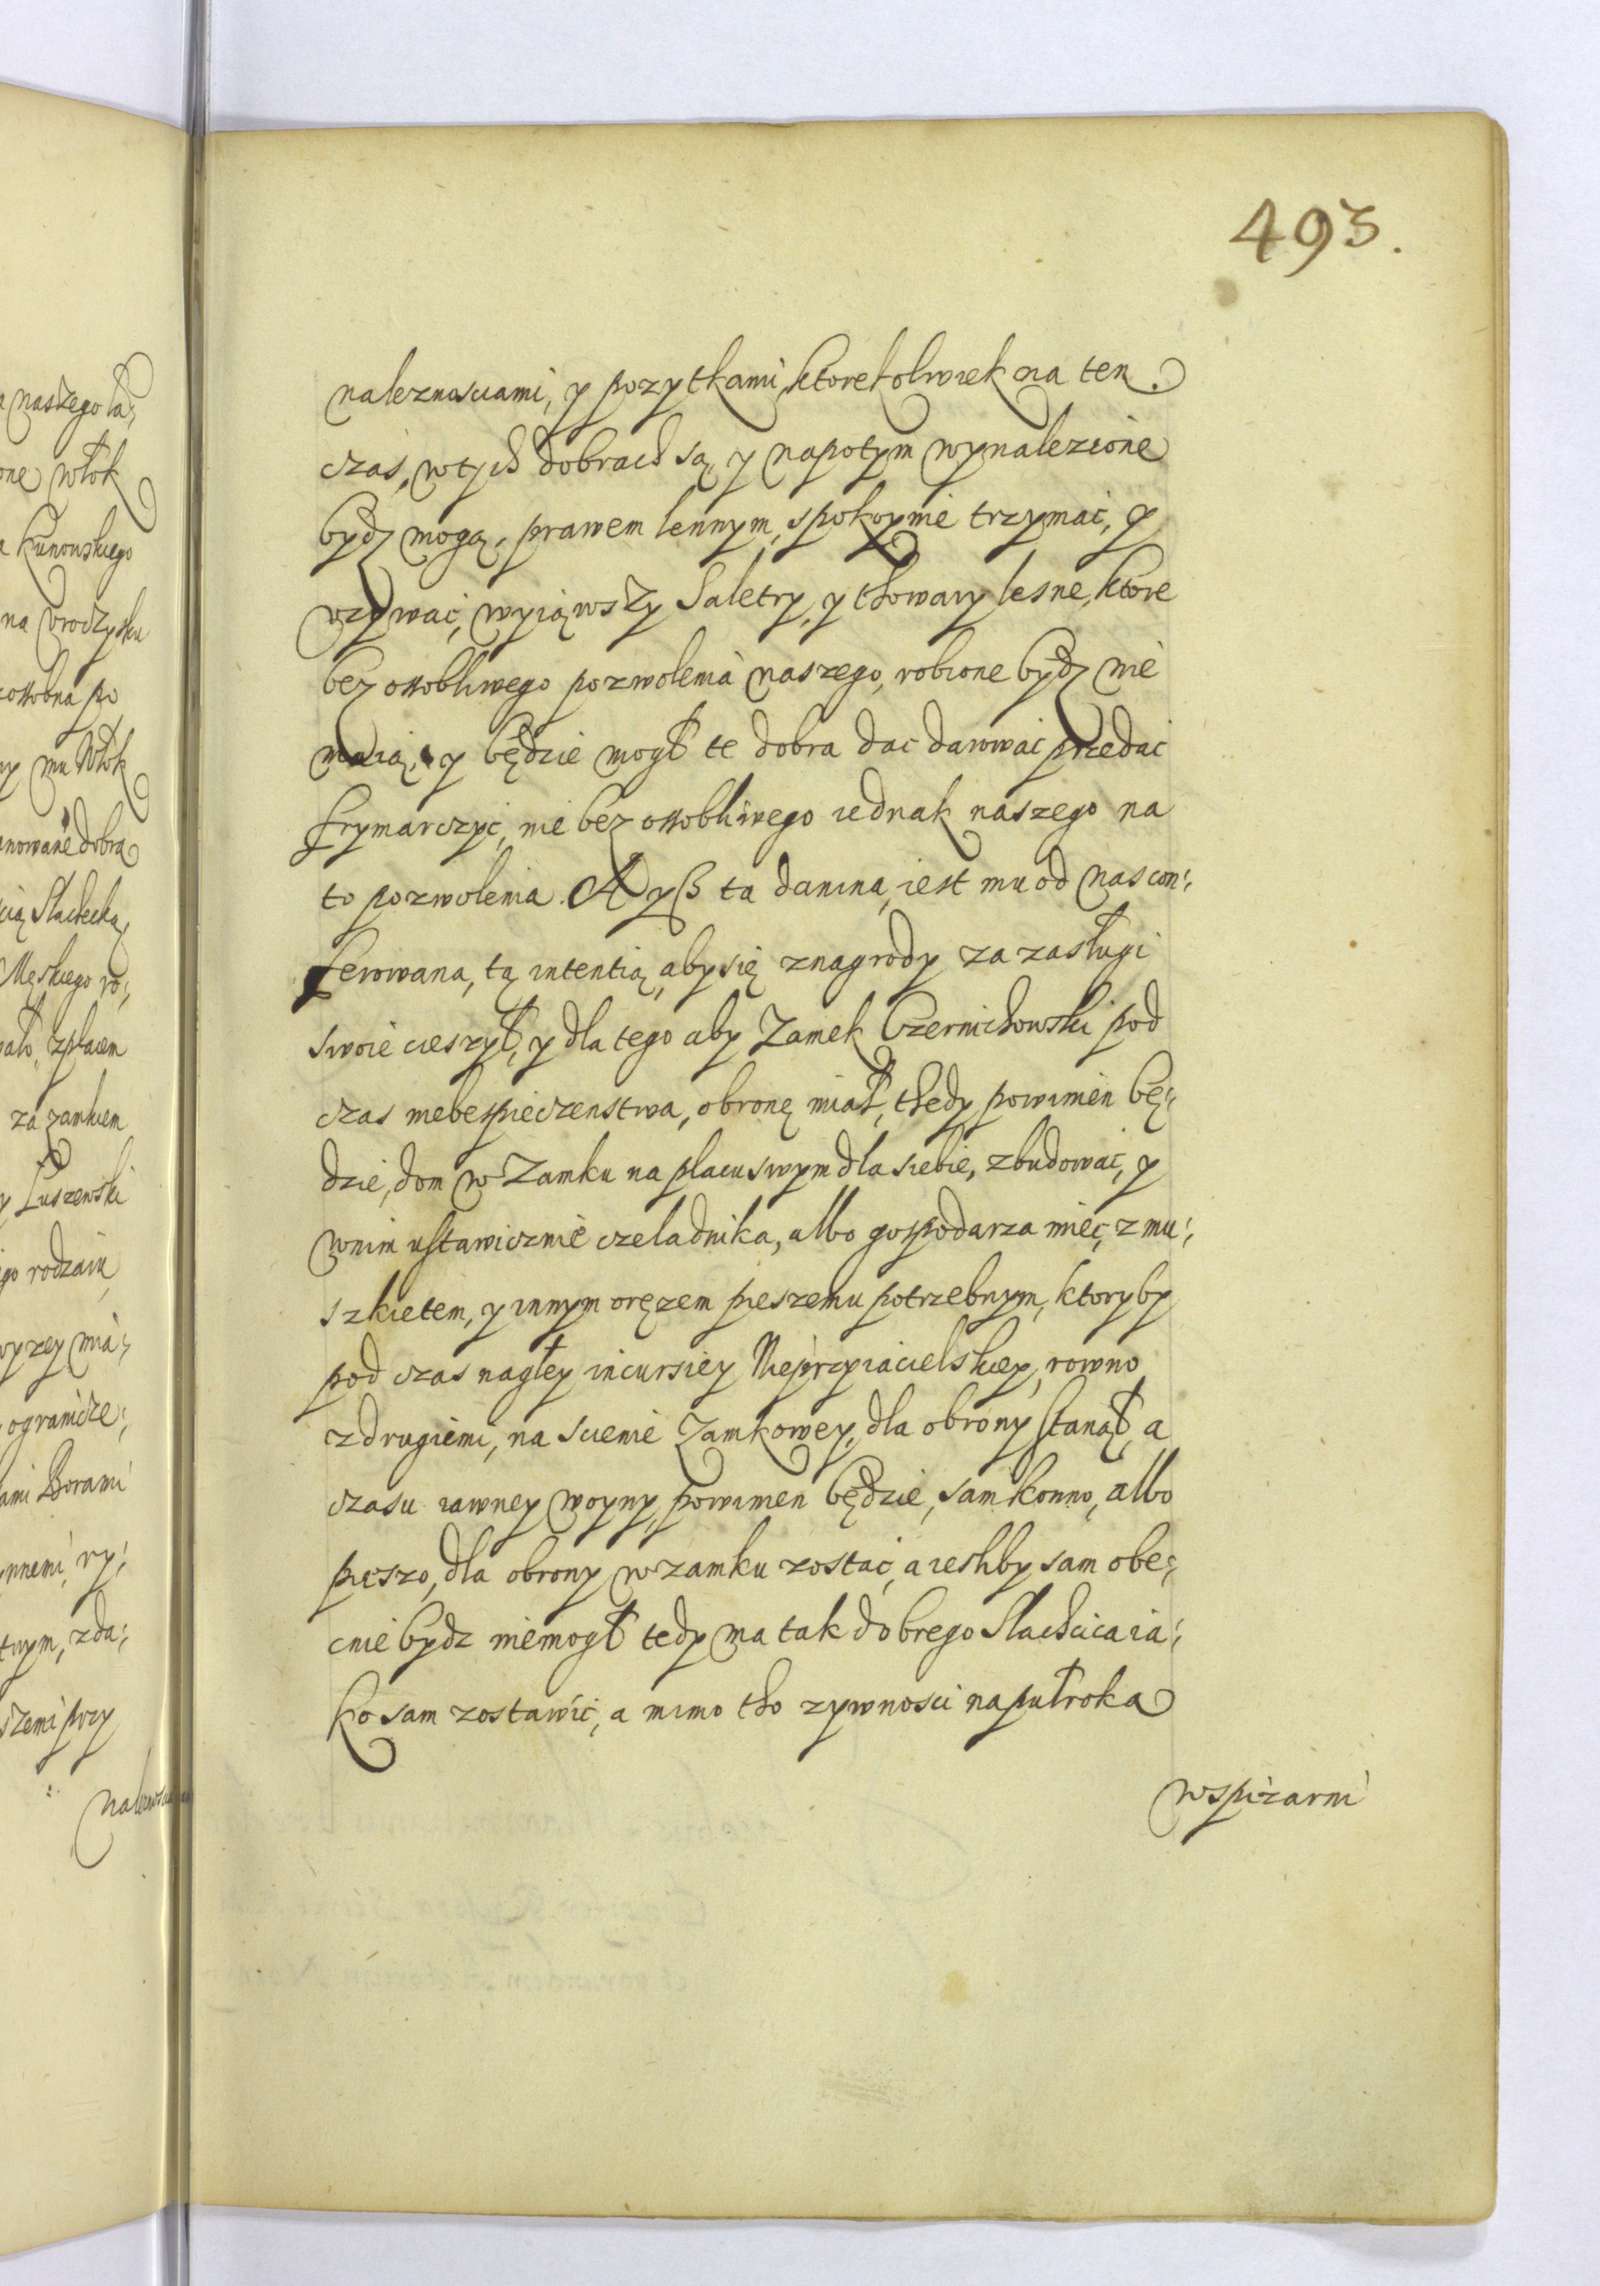 493.
naleznosciami, y pozytkami, ktorekolwiek na ten
czas, w tych dobrach są, y napotym wynalezione
bydz mogą, prawem lennym, spokoynie trzymac, y
vzywac, wyiąwszy Saletry, y thowary lesne, ktore
bez ossobliwego pozwolenia naszego, robione bydz nie
maią, y będzie mogł te dobra dac darowac przedac
frymarczyc, nie bez ossobliwego iednak naszego na
to pozwolenia. A yß ta danina, iest mu od nas con:
ferowana, tą intentią, aby się z nagrody za zasługi
swoie cieszył, y dla tego aby Zamek Czernichowski pod
czas niebespieczenstwa, obronę miał, thedy powinien bę:
dzie, dom w Zamku na placu swym dla siebie, zbudowac, y
w nim ustawicznie czeladnika, albo gospodarza miec, z mu:
szkietem, y innym oręzem pieszemu potrzebnym, ktoryby
pod czas nagłey incursiey Nieprzyiacielskiey, rowno
z drugiemi, na scienie Zamkowey, dla obrony stanął, a
czasu iawney woyny, powinien będzie, sam konno, albo
pieszo, dla obrony w zamku zostac, a iesliby sam obe:
cnie bydz niemogł tedy ma tak dobrego Slachcica ia:
ko sam zostawic, a mimo tho zywnosci na pułroka
w spizarni
a naszego ła:
one włok
a Kunowskiego
na vroczysku
ossobna po
mu Włok
anowane dobra
cią Slachecką
Męskiego ro:
z placem
za zamkiem
y Łuszenski
go rodzaiu
wyzey mia:
ogranicze:
ami Borami
nnemi, ry:
twym, z da:
szemi przy